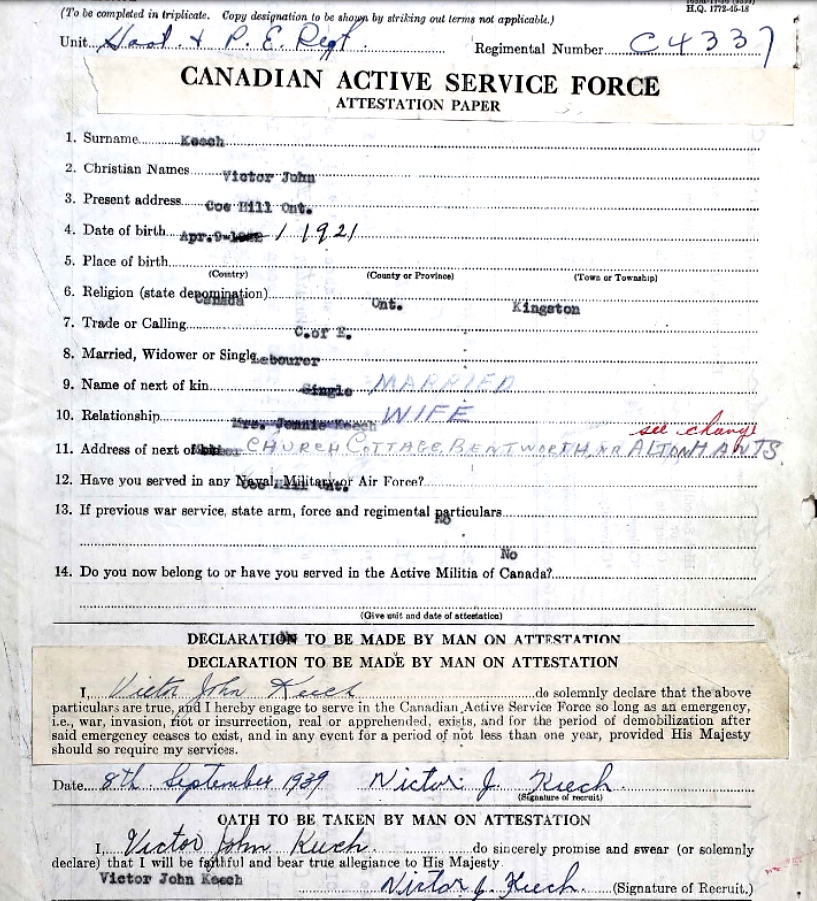 (To be completed in triplicate. Copy designation to be shown by striking out terms not applicable.)
H.Q. 1772-45-18
Unit Hast. & P. E. Regt. Regimental Number C4337
CANADIAN ACTIVE SERVICE FORCE
ATTESTATION PAPER
1. Surname Keech
2. Christian Names Victor John
3. Present address Coe Hill Ont.
4. Date of birth Apr. 9- / 1921
5. Place of birth
(Country) (County or Province) (Town or Township)
6. Religion (state denomination)
Canada Ont. Kingston
7. Trade or Calling
C.of E.
8. Married, Widower or Single Labourer
9. Name of next of kin Single MARRIED
10. Relationship Mrs. Jennie Keech WIFE
see change
11. Address of next of CHURCH COTTAGE, BENTWORTH, NR ALTON HANTS
12. Have you served in any Naval, Military or Air Force?
Coe Hill Ont.
13. If previous war service, state arm, force and regimental particulars
No
No
14. Do you now belong to or have you served in the Active Militia of Canada?
(Give unit and date of attestation)
DECLARATION TO BE MADE BY MAN ON ATTESTATION
DECLARATION TO BE MADE BY MAN ON ATTESTATION
I, Victor John Keech do solemnly declare that the above
particulars are true, and I hereby engage to serve in the Canadian Active Service Force so long as an emergency,
i.e., war, invasion, riot or insurrection, real or apprehended, exists, and for the period of demobilization after
said emergency ceases to exist, and in any event for a period of not less than one year, provided His Majesty
should so require my services.
Date 8th September 1939 Victor J. Keech
(Signature of recruit)
OATH TO BE TAKEN BY MAN ON ATTESTATION
I, Victor John Keech do sincerely promise and swear (or solemnly
declare) that I will be faithful and bear true allegiance to His Majesty.
Victor John Keech Victor J. Keech (Signature of Recruit.)